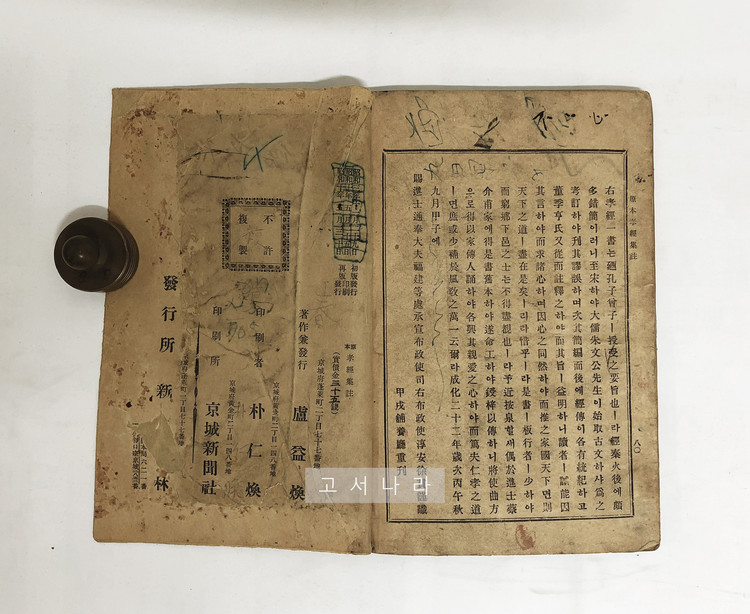 原本孝經集註
八〇
右孝經一書는迺孔子曾子ㅣ授受之要旨也ㅣ라經秦火後에頗
多錯簡이러니至宋하야大儒朱文公先生이始取古文하샤爲之
考訂하야刊其謬誤하며次其簡編而後에經傳이各有統紀하고
董季亨氏又從而註釋之하야而其旨ㅣ益明하니讀者ㅣ誠能因
其言하야而求諸心하며因心之同然하야而推之家國天下면則
天下之道ㅣ盡在是矣ㅣ리라惜乎ㅣ라是書ㅣ板行者ㅣ少하야
而窮鄕下邑之士는不得盡覩也ㅣ라予近按泉할새偶於進士蔡
介甫家에得是書舊本하야遂命工하야鋟梓以傳하니將使曲方
으로得以家傳人誦하야各興其親愛之心하야而篤夫仁孝之道
ㅣ면庶或少補於風敎之萬一云爾라成化二十三年歲次丙午秋
九月甲子에
賜進士通奉大夫福建等處承宣布政使司右布政使淳安徐
甲戌 養廳重刊
初版印刷
初版發行
再版發行
原本 孝經集註
(實價金三十五錢)
京城府蓬萊町二丁目七十七番地
著作兼發行 盧益煥
京城府黃金町二丁目一四八番地
印刷者 朴仁煥
京城府黃金町二丁目一四八番地
印刷所 京城新聞社
不許複製
發行所 新 林
고서나라